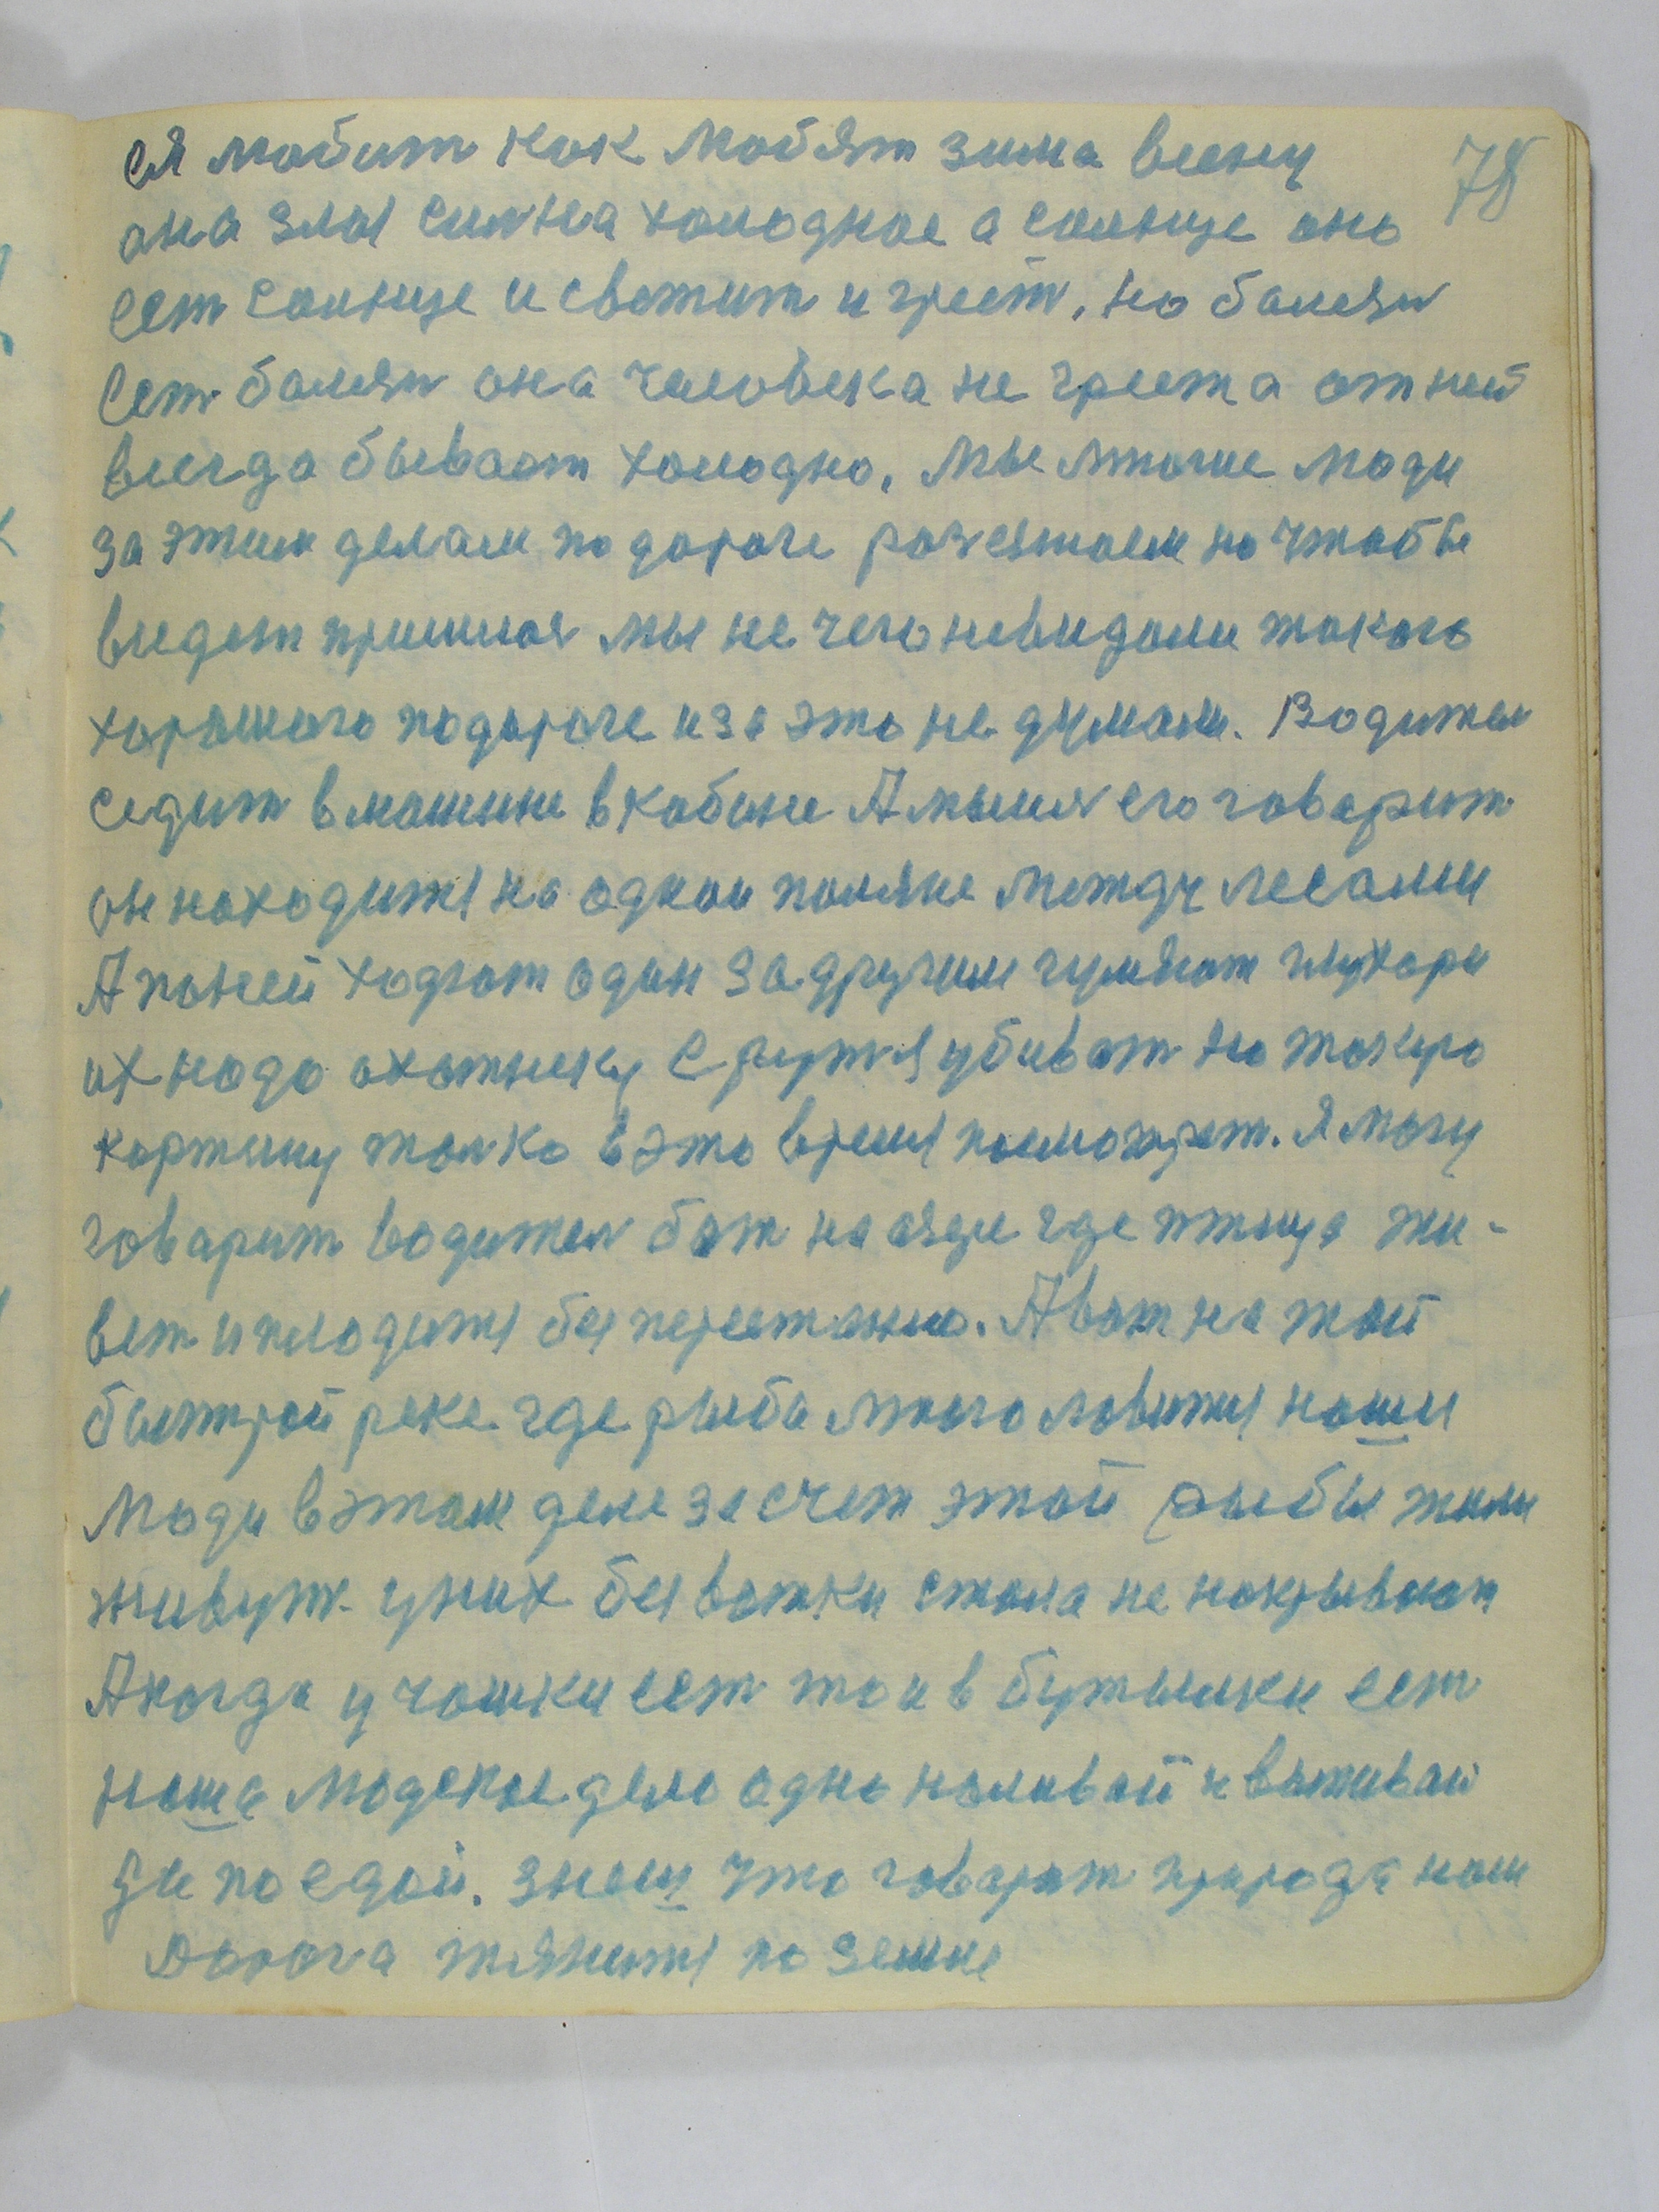 78
ся любит как любят зима весну
она злая силна холодное а солнце оно
ест солнце и светит и греет, но болезн
ест болезн она человека не греет а от ней
всегда бывает холодно, мы многие люди
за этим делам по дороге расстаем но чтобы
видет пришлос мы не чего невидали такого
хорошого подороге и за это не думаем. Водител
седит в машине в кабине А мысля его говорит
он находится на однои поляне между лесами
А поней ходят один за другим гуляют глухари
их надо охотнеку с ружя убиват но такую
картину толко в это время посмотрет. Я могу
говорит водител бат на озере где птица жи-
вет и плодится без перестанно. А вот на той
быстрой реке где рыба много ловится наши
люди в этом деле за счет этой рыбы жили
живут. у них без вотки стола не накрывают
А когда у чашки ест то и в бутылки ест
наше людское дело одно наливай и выпивай
да поедай. знаеш что говорят природа наш
Дорога тянится по земле